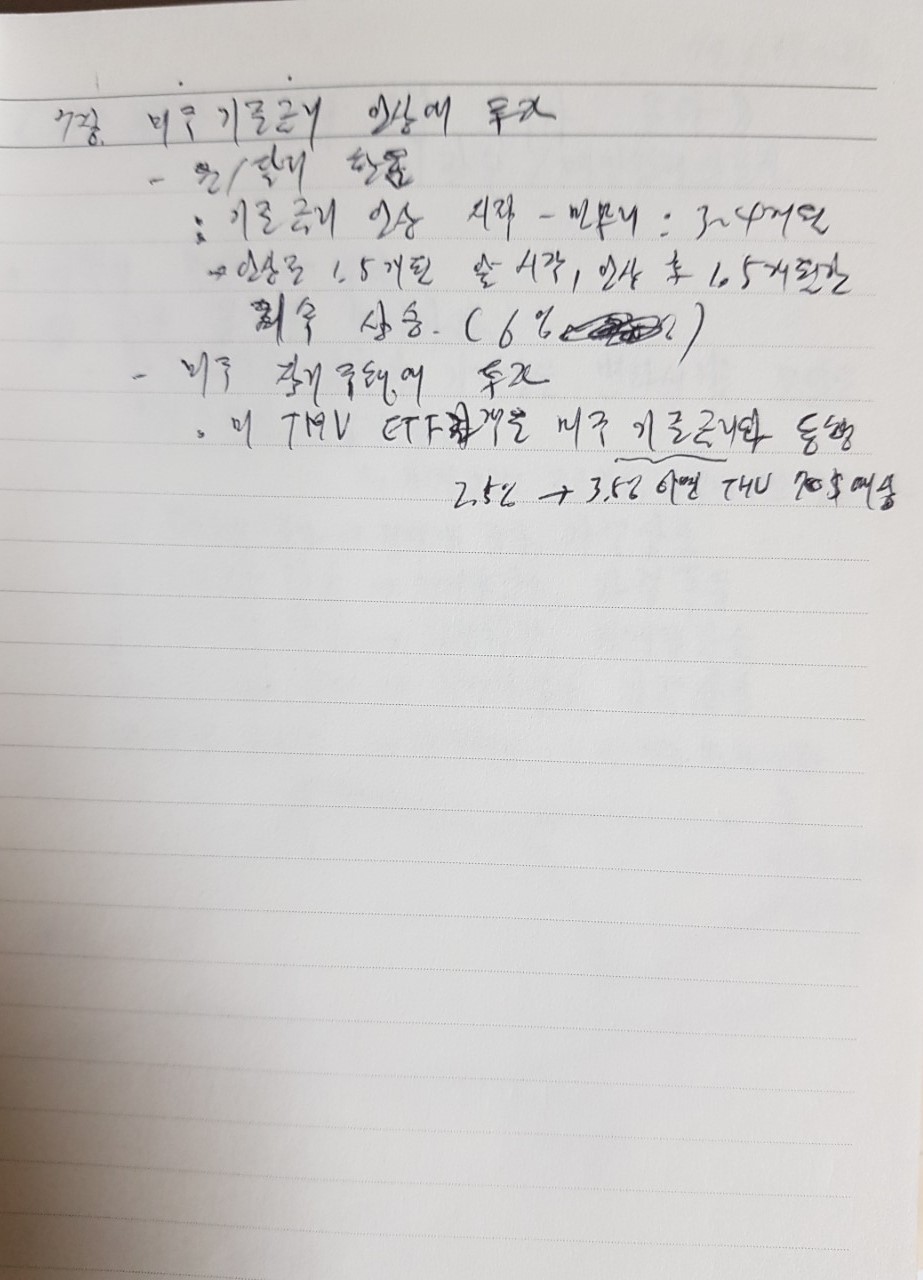 7장. 미국 기준금리 인상에 투자
- 원/달러 환율
: 기준금리 인상 시작 - 마무리 : 3~4개월
→ 인상도 1.5개월 앞 시작, 인상 후 1.5개월간
상승. (6%)
- 미국 장기국채에 투자
. 미 TMV ETF 미국 기준금리와 동행
2.5% → 3.5% 이면 TMV 70$ 예상